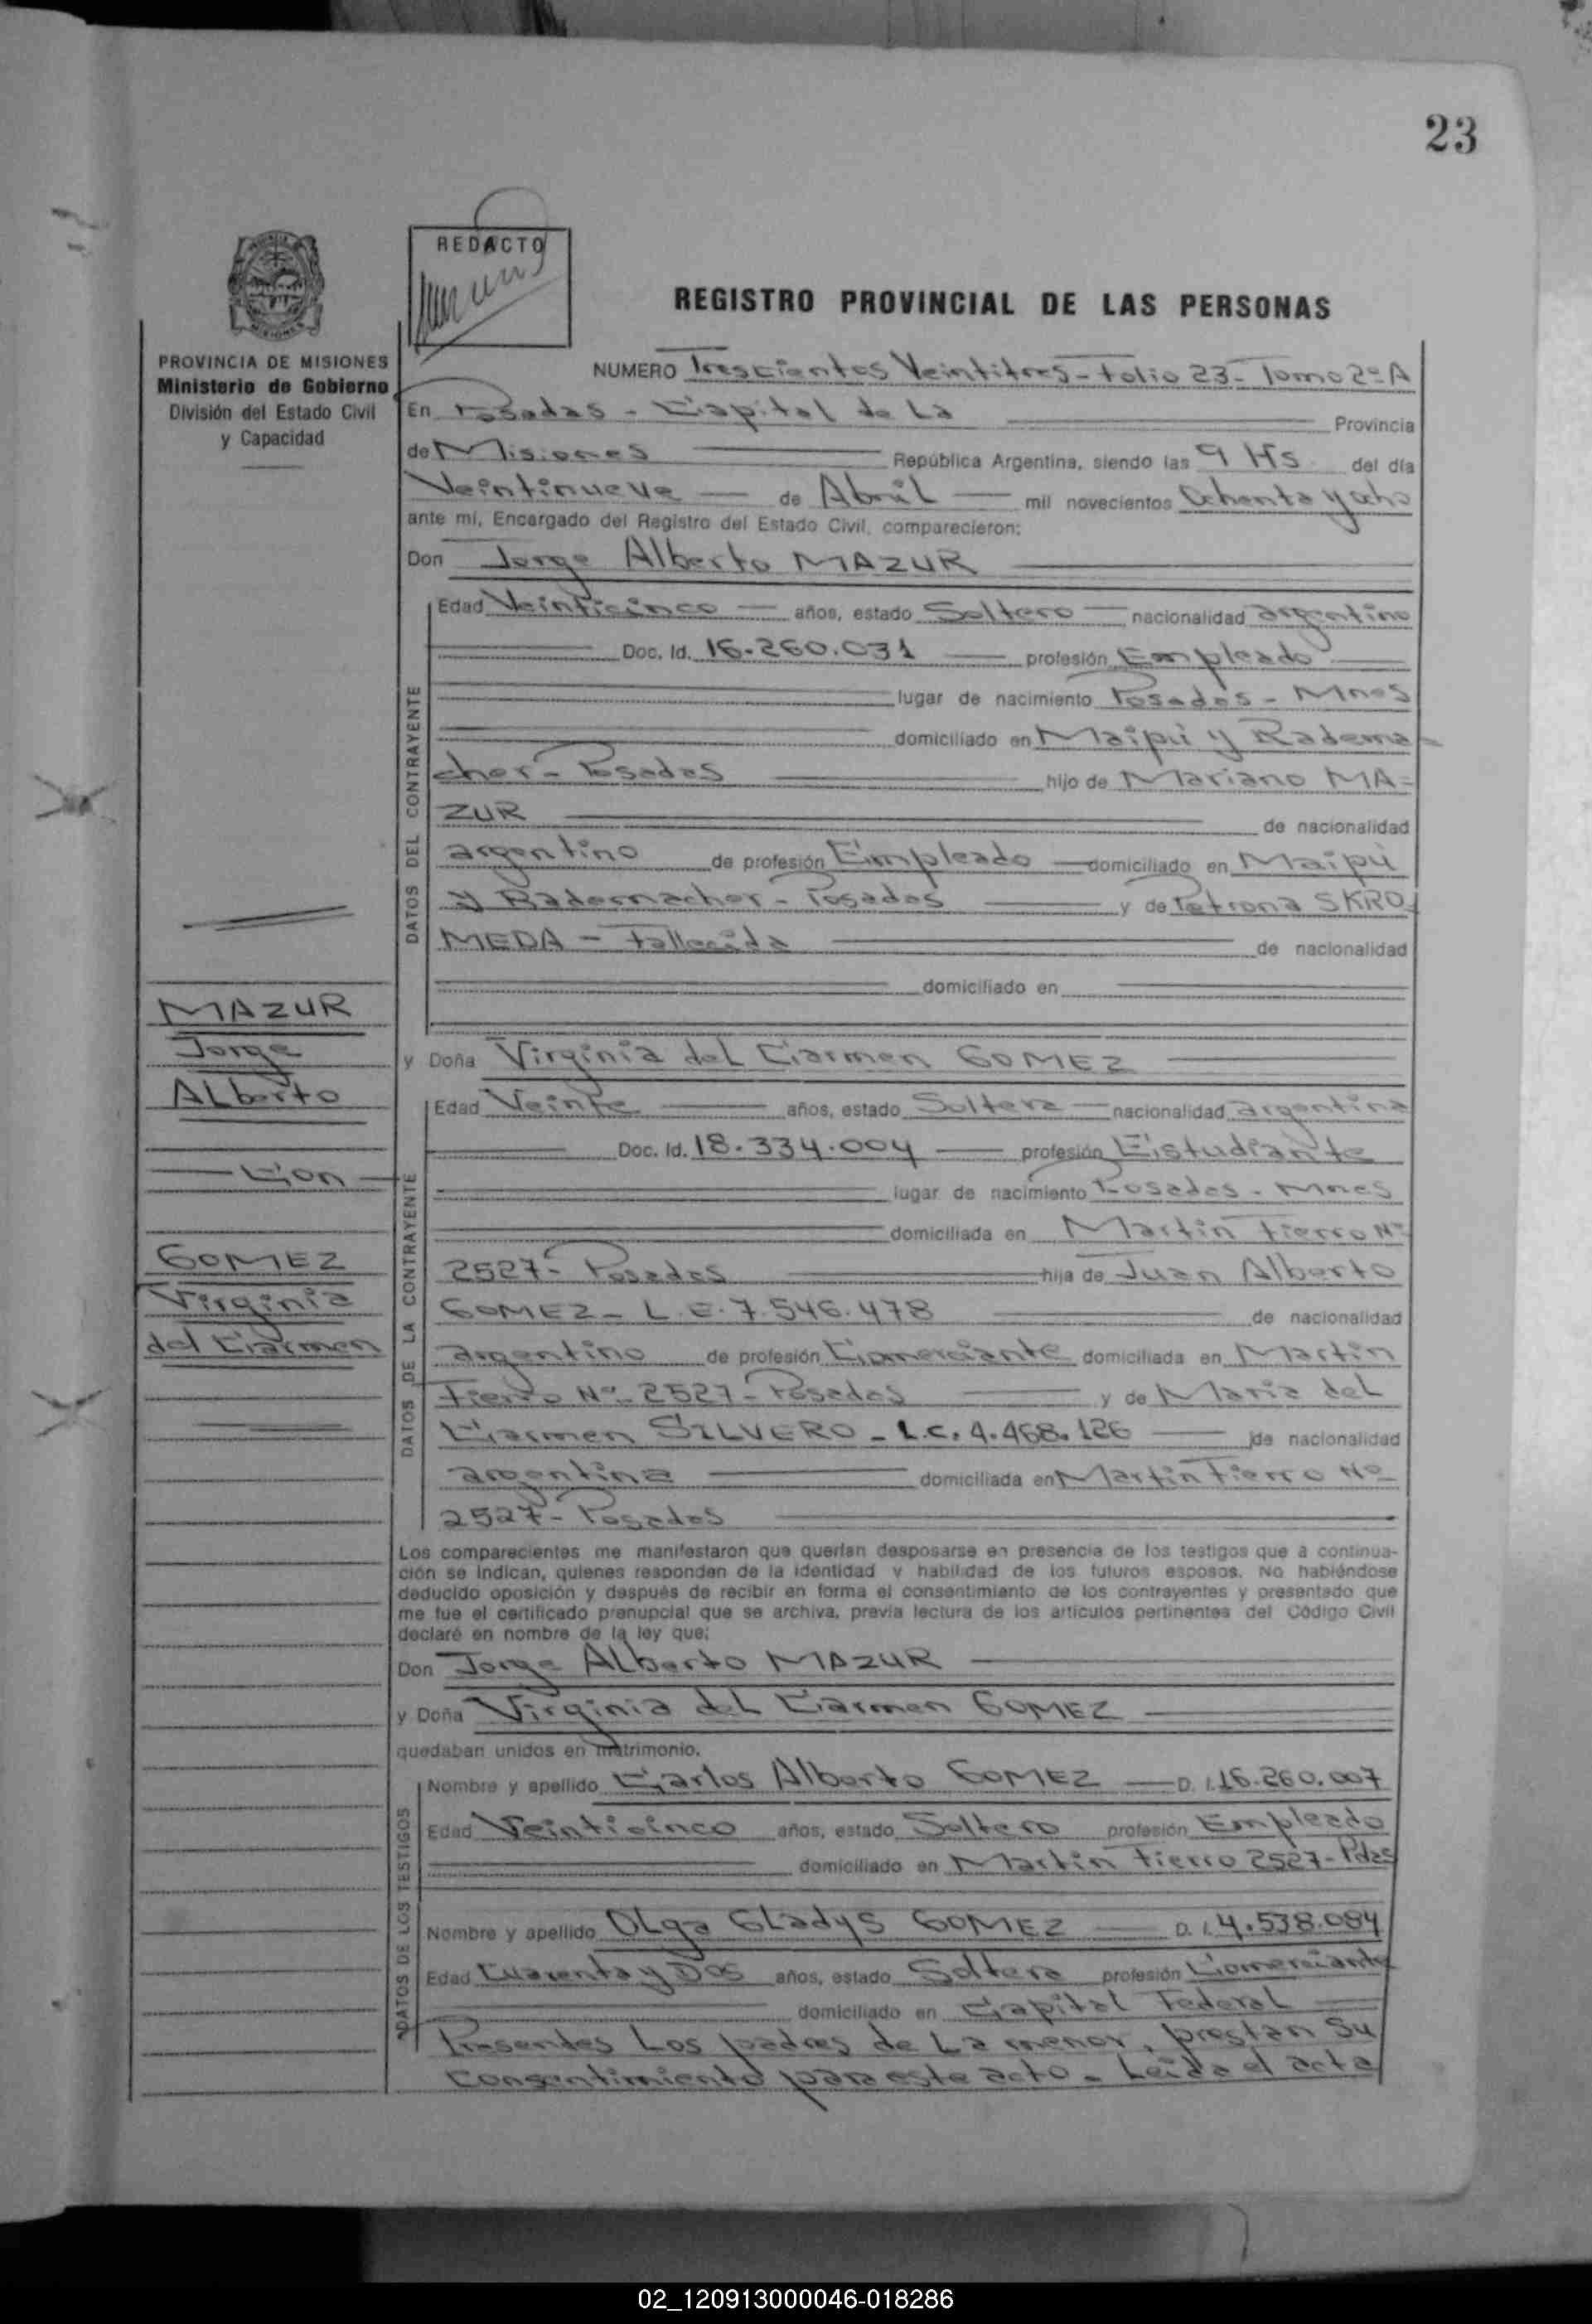 23
REDACTO
REGISTRO PROVINCIAL DE LAS PERSONAS
PROVINCIA DE MISIONES
Ministerio de Gobierno
División del Estado Civil
y Capacidad
NUMERO Trescientos Veintitres - Folio 23 - Tomo 2º A
En Posadas - Capital de La Provincia
de Misiones República Argentina, siendo las 9 Hs del día
Veintinueve de Abril mil novecientos Ochenta y ocho
ante mí, Encargado del Registro del Estado Civil, comparecieron:
Don Jorge Alberto MAZUR
DATOS DEL CONTRAYENTE
Edad Veinticinco años, estado Soltero nacionalidad argentino
Doc. Id. 16.260.031 profesión Empleado
lugar de nacimiento Posadas - Mnes
domiciliado en Maipú y Radema-
cher - Posadas hijo de Mariano MA-
ZUR de nacionalidad
argentino de profesión Empleado domiciliado en Maipú
y Radermacher - Posadas y de Petrona SKRO-
MEDA - Fallecida de nacionalidad
domiciliado en
MAZUR
Jorge
Alberto
Con
GOMEZ
Virginia
del Carmen
y Doña Virginia del Carmen GOMEZ
DATOS DE LA CONTRAYENTE
Edad Veinte años, estado Soltera nacionalidad argentina
Doc. Id. 18.334.004 profesión Estudiante
lugar de nacimiento Posadas - Mnes
domiciliada en Martin Fierro Nº
2527 - Posadas hija de Juan Alberto
GOMEZ - L.E. 7.546.478 de nacionalidad
argentino de profesión Comerciante domiciliada en Martin
Fierro Nº 2527 - Posadas y de Maria del
Carmen SILVERO - L.C. 4.468.126 de nacionalidad
argentina domiciliada en Martin Fierro Nº
2527 - Posadas
Los comparecientes me manifestaron que querían desposarse en presencia de los testigos que a continua-
ción se indican, quienes responden de la identidad y habilidad de los futuros esposos. No habiéndose
deducido oposición y después de recibir en forma el consentimiento de los contrayentes y presentado que
me fue el certificado prenupcial que se archiva, previa lectura de los artículos pertinentes del Código Civil
declaré en nombre de la ley que:
Don Jorge Alberto MAZUR
y Doña Virginia del Carmen GOMEZ
quedaban unidos en matrimonio.
DATOS DE LOS TESTIGOS
Nombre y apellido Carlos Alberto GOMEZ D. I. 16.260.007
Edad Veinticinco años, estado Soltero profesión Empleado
domiciliado en Martin Fierro 2527 - Pdas
Nombre y apellido Olga Gladys GOMEZ D. I. 4.538.084
Edad Cuarenta y Dos años, estado Soltera profesión Comerciante
domiciliado en Capital Federal
Presentes Los padres de La menor, prestan su
Consentimiento para este acto - Leida el acta
02_120913000046-018286